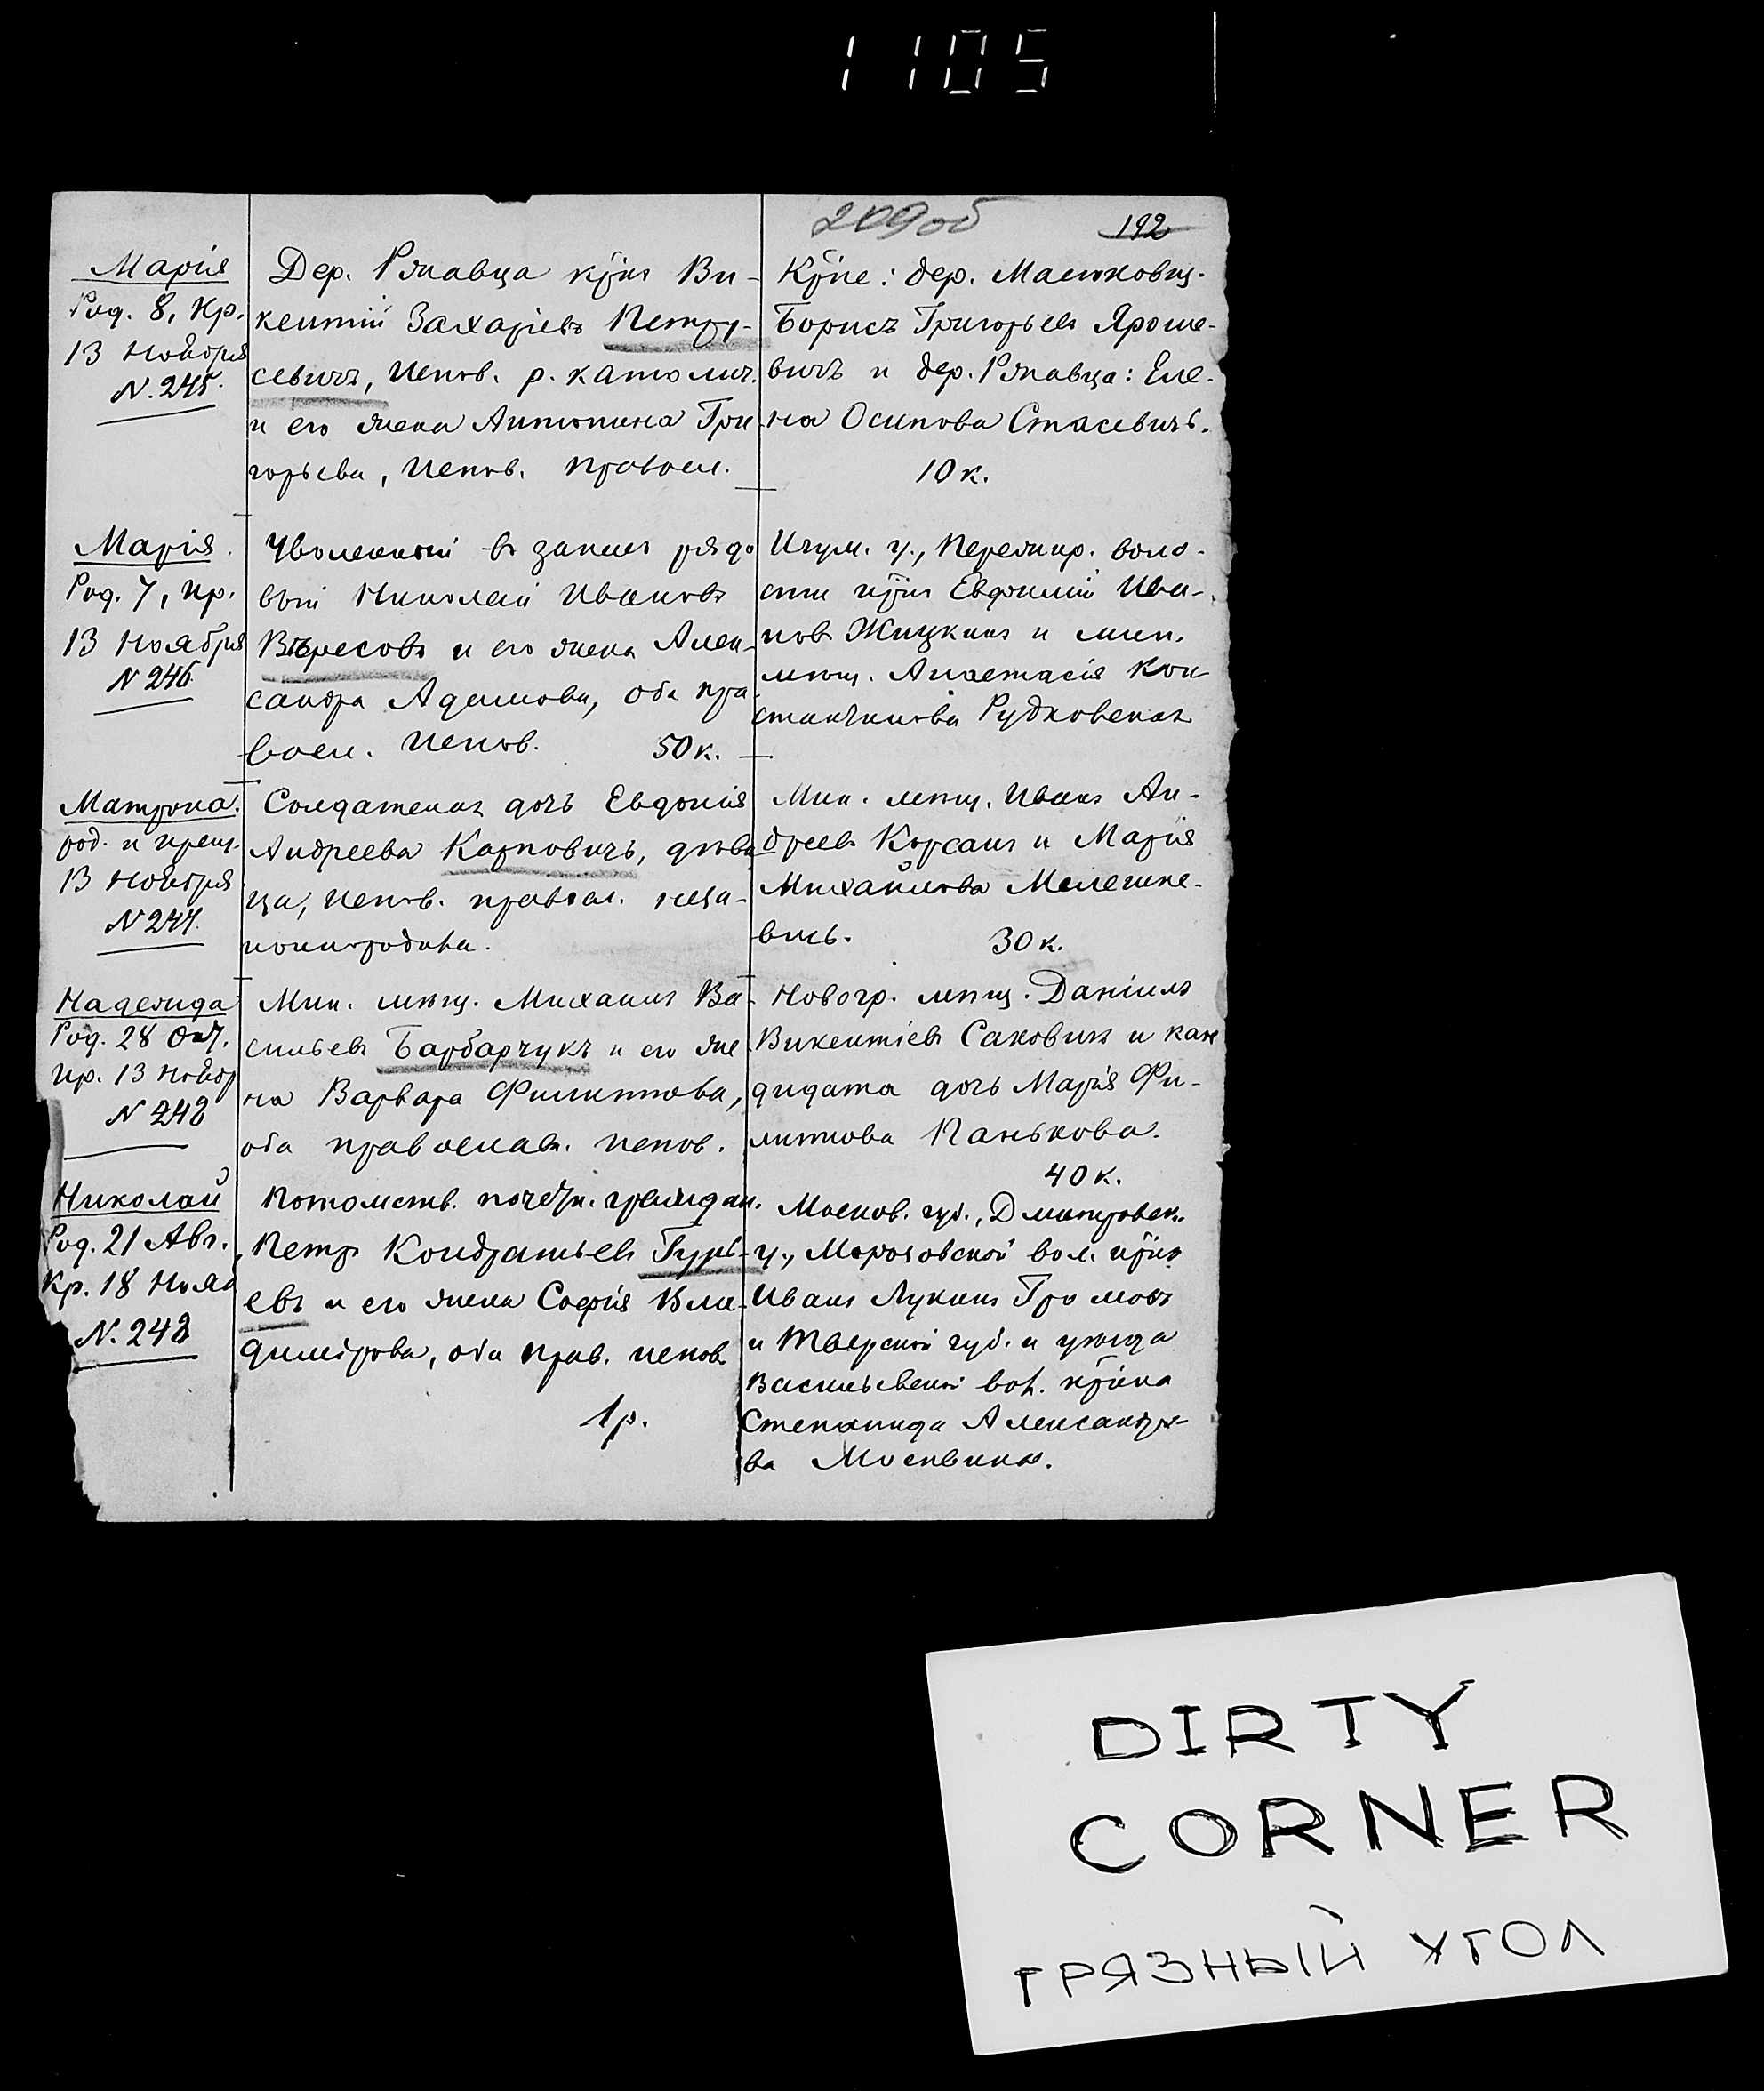 1105
209об
192
Марія
Род. 8, Кр.
13 Ноября
N. 245.
Дер. Ряпавца кр͠нъ Ви-
кентій Захаріевъ Петру-
севичъ, испов. р. католич.
и его жена Антонина Гри-
горьева, испов. правосл.
Кр͠не: дер. Масюковщ.
Борисъ Григорьевъ Яроше-
вичъ и дер. Ряпавца: Еле-
на Осипова Стасевичъ.
10 к.
Марія.
Род. 7, кр.
13 Ноября
N 246.
Уволенный въ запасъ рядо
вый Николай Ивановъ
Вѣресовъ и его жена Алек-
сандра Адамова, оба пра-
восл. испов. 50 к.
Игум. у., Пережир. воло-
сти кр͠нъ Евфимій Ива-
новъ Жицкинъ и мин.
мѣщ. Анастасія Кон
стантинова Рудковская
Матрона.
род. и крещ.
13 Ноября
N 247.
Солдатская дочь Евдокія
Андреева Карповичъ, дѣви
ца, испов. правосл. неза-
коннорождена.
Мин. мѣщ. Иванъ Ан-
дреевъ Корсакъ и Марія
Михайлова Мелешке-
вичъ. 30 к.
Надежда
Род. 28 Окт.
кр. 13 Нояб
N 248
Мин. мѣщ. Михаилъ Ва-
сильевъ Барбарчукъ и его же
на Варвара Филиппова,
оба православ. испов.
Новогр. мѣщ. Даніилъ
Викентіевъ Саковичъ и кан
дидата дочь Марія Фи-
липпова Панькова.
40 к.
Николай
Род. 21 Авг.
Кр. 18 Нояб
N. 248
Потомств. почетн. граждан.
Петръ Кондратьевъ Гурь-
евъ и его жена Софія Вла-
димірова, оба прав. испов.
1 р.
Москов. губ., Дмитровск.
у., Морозовской вол. кр͠нъ
Иванъ Лукинъ Громовъ
и Тверской губ. и уѣзда
Васильевской вол. кр͠нка
Степанида Александро-
ва Москвина.
DIRTY
CORNER
ГРЯЗНЫЙ УГОЛ